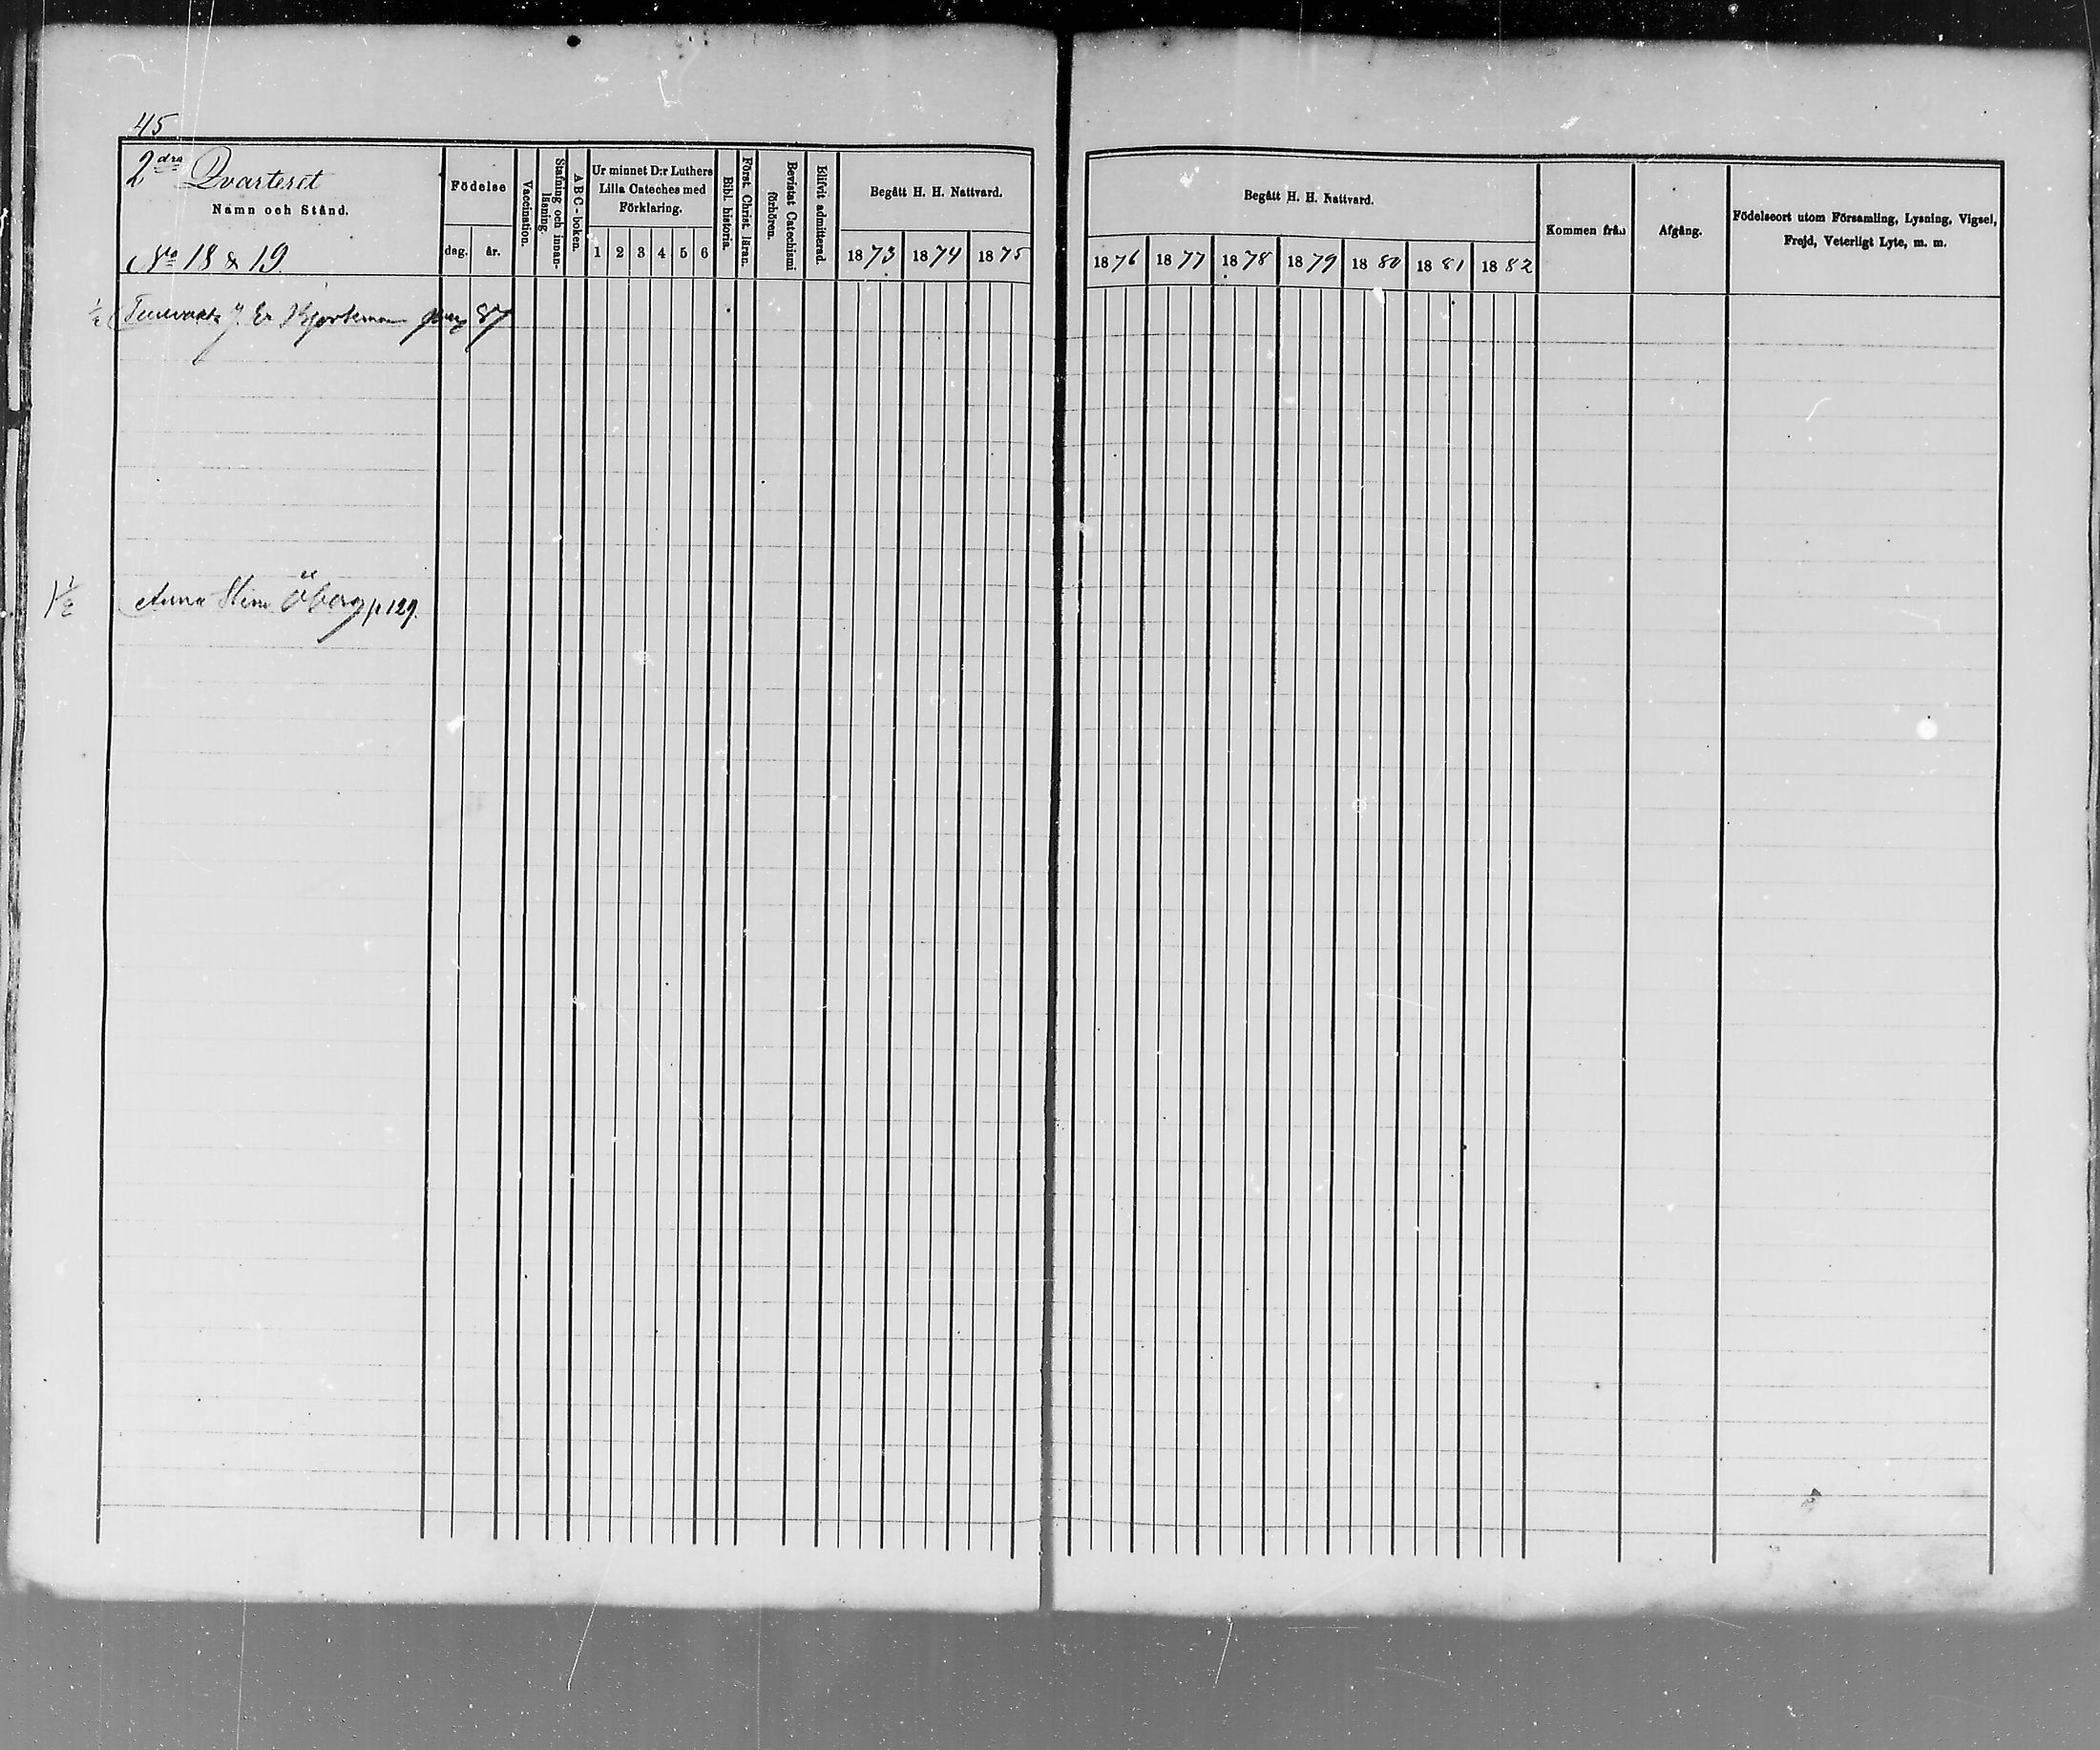 45
2dra Qvarteret
Namn och Stånd.
No 18 & 19.
Födelse
dag. år.
Vaccination.
Stafning och innan-
läsning.
ABC-boken.
Ur minnet D:r Luthers
Lilla Cateches med
Förklaring.
1 2 3 4 5 6
Bibl. historia.
Först. Christ. läran.
Bevistat Catechismi
förhören.
Blifvit admitterad.
Begått H. H. Nattvard.
1873 1874 1875
Begått H. H. Nattvard.
1876 1877 1878 1879 1880 1881 1882
Kommen från
Afgång.
Födelseort utom Församling, Lysning, Vigsel,
Frejd, Veterligt Lyte, m. m.
1/2 J. Er Björkman 87
1 1/2 Anna Stina Öberg p 129.